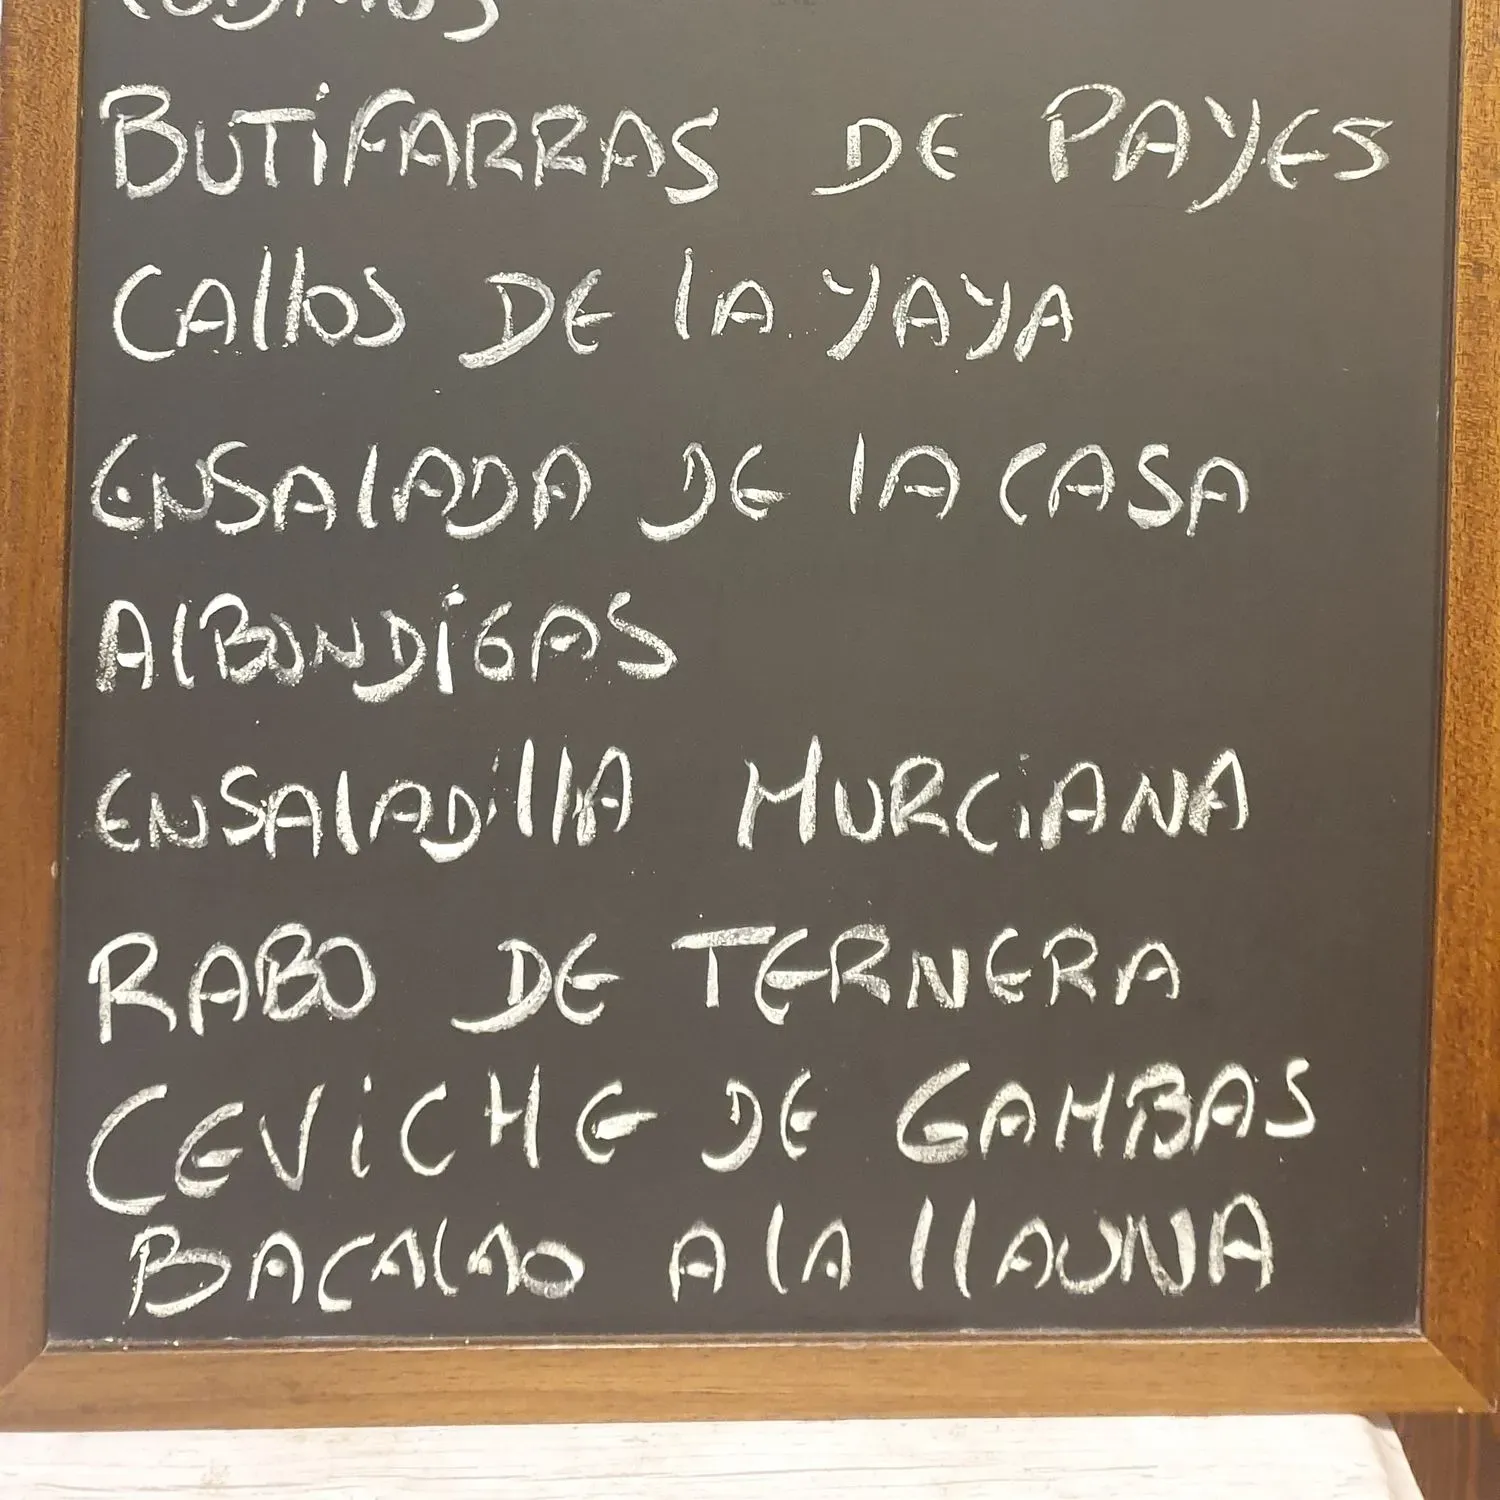 BUTIFARRAS DE PAYES
CALLOS DE LA YAYA
ENSALADA DE LA CASA
ALBONDIGAS
ENSALADILLA MURCIANA
RABO DE TERNERA
CEVICHE DE GAMBAS
BACALAO A LA LLAUNA